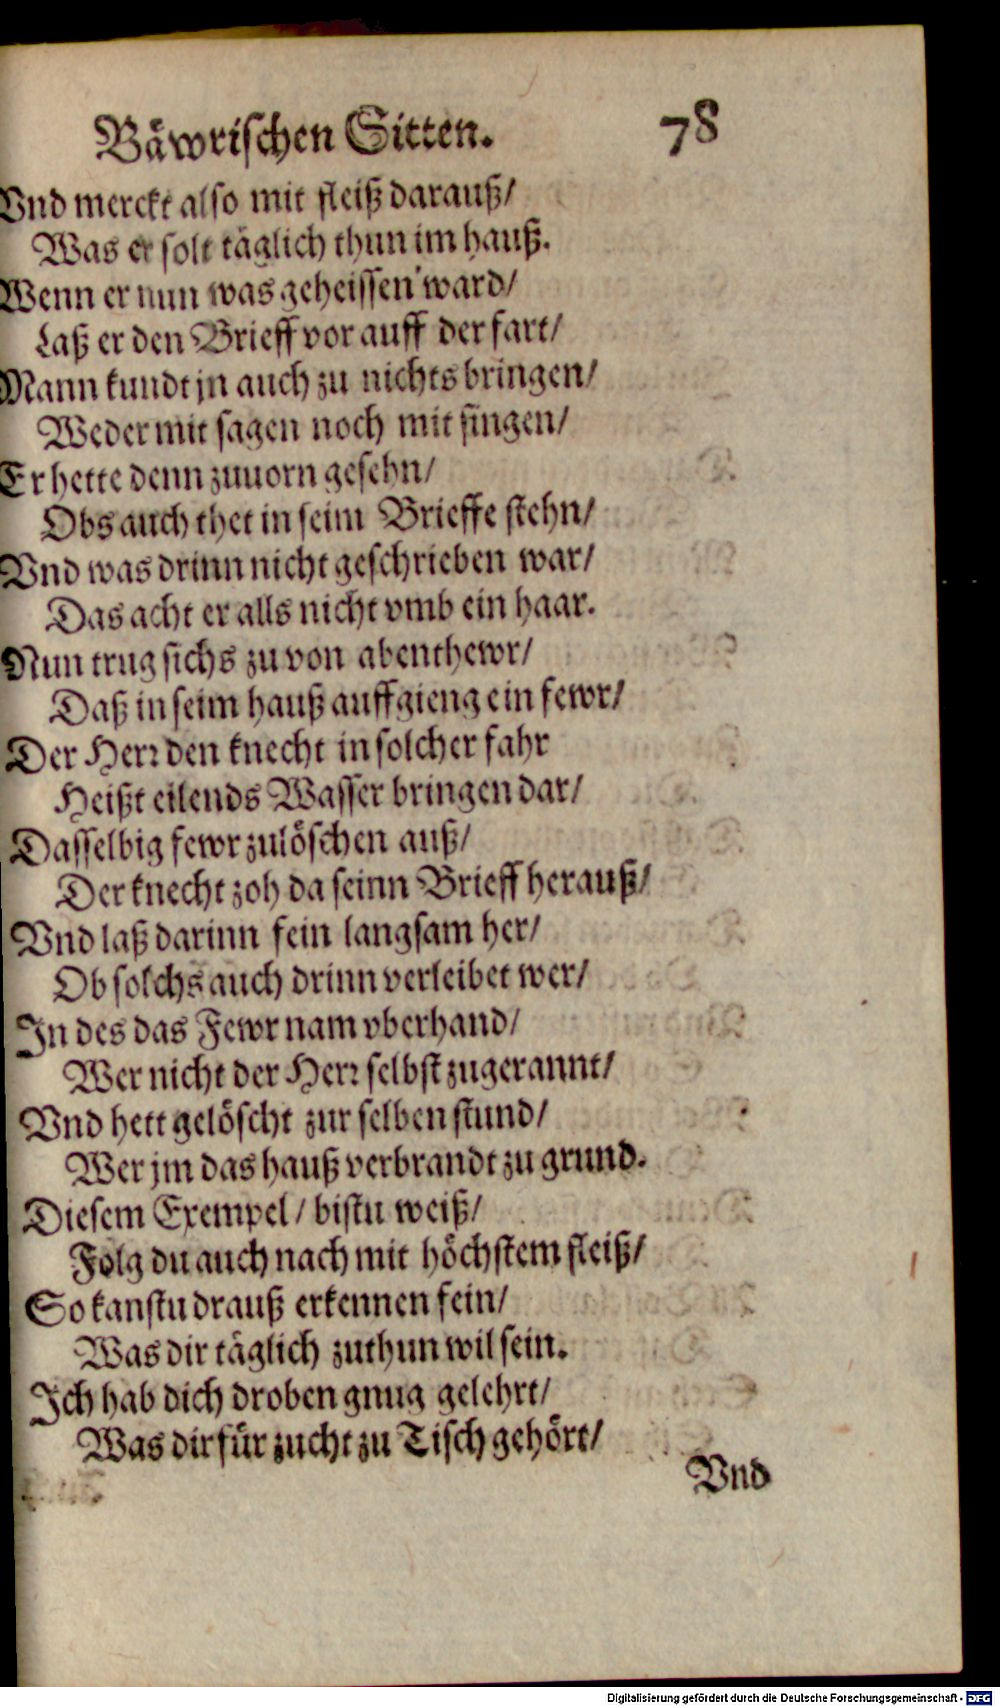 Bäwrischen Sitten. 78
Vnd merckt also mit fleiß darauß/
Was er solt täglich thun im hauß.
Wenn er nun was geheissen ward/
Laß er den Brieff vor auff der fart/
Mann kundt jn auch zu nichts bringen/
Weder mit sagen noch mit singen/
Er hette denn zuuorn gesehn/
Obs auch thet in seim Brieffe stehn/
Vnd was drinn nicht geschrieben war/
Das acht er alls nicht vmb ein haar.
Nun trug sichs zu von abenthewr/
Daß in seim hauß auffgieng ein fewr/
Der Herr den knecht in solcher fahr
Heißt eilends Wasser bringen dar/
Dasselbig fewr zulöschen auß/
Der knecht zoh da seinn Brieff herauß/
Vnd laß darinn fein langsam her/
Ob solchs auch drinn verleibet wer/
In des das Fewr nam vberhand/
Wer nicht der Herr selbst zugerannt/
Vnd hett gelöscht zur selben stund/
Wer jm das hauß verbrandt zu grund.
Diesem Exempel/ bistu weiß/
Folg du auch nach mit höchstem fleiß/
So kanstu drauß erkennen fein/
Was dir täglich zuthun wil sein.
Ich hab dich droben gnug gelehrt/
Was dir für zucht zu Tisch gehört/
Vnd
Digitalisierung gefördert durch die Deutsche Forschungsgemeinschaft - DFG